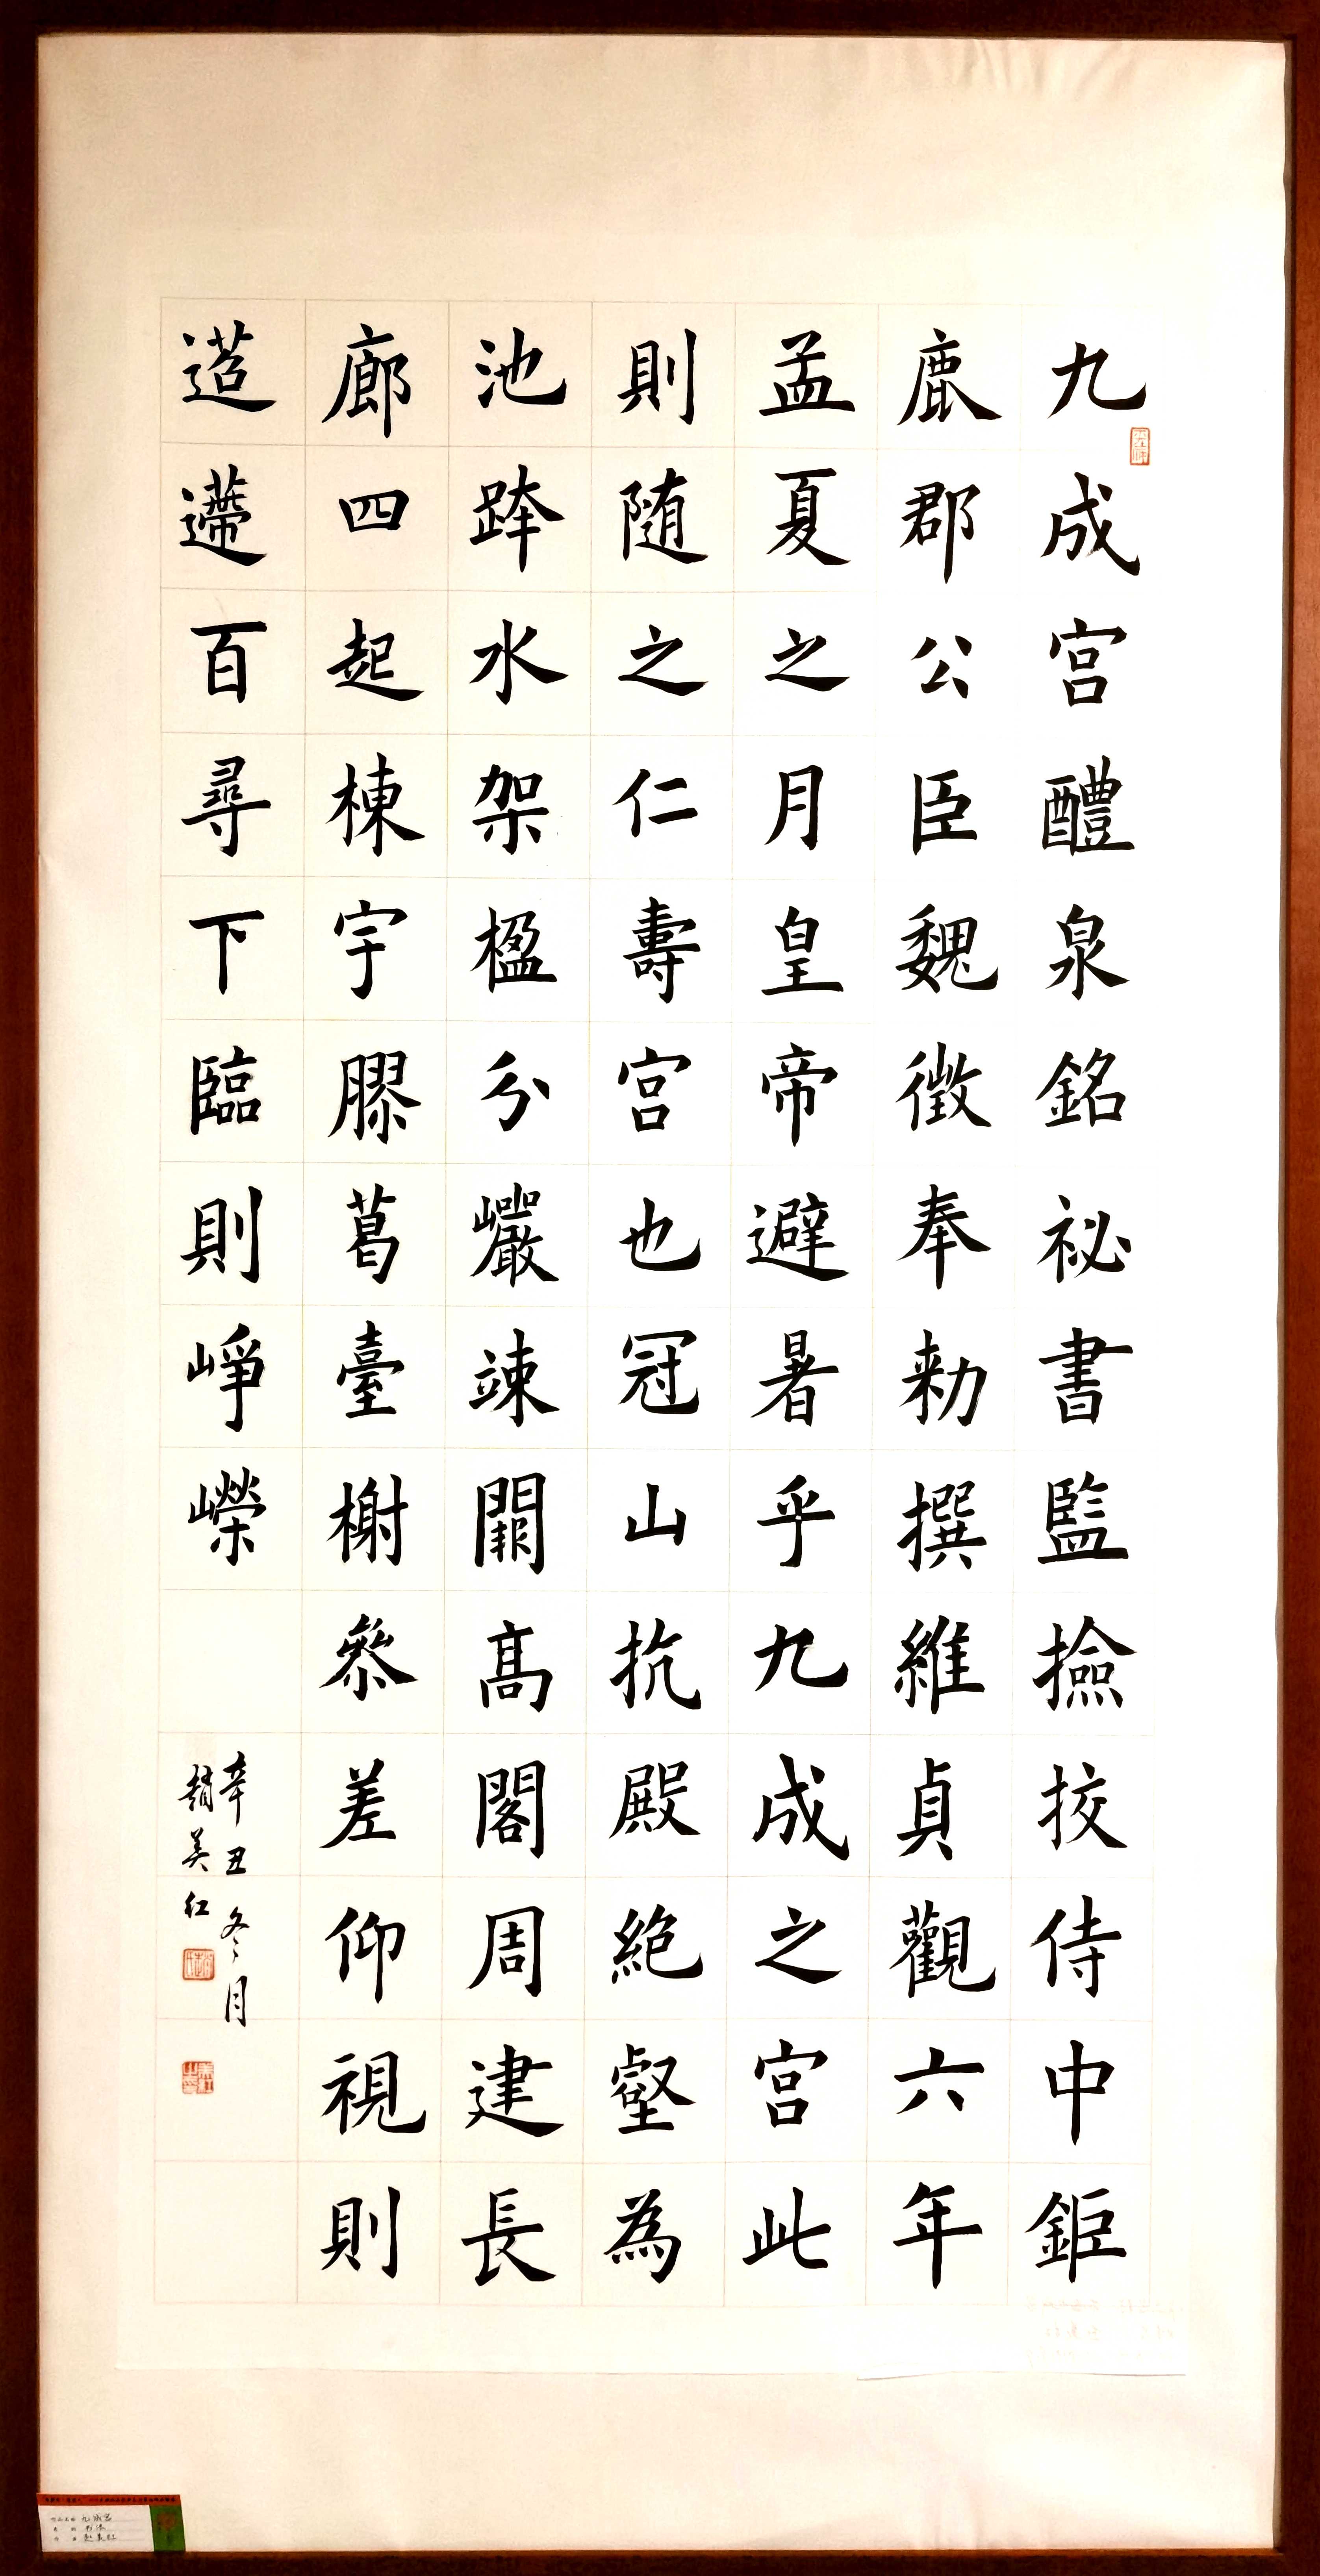 九成宫醴泉銘祕書監撿挍侍中鉅
鹿郡公臣魏徵奉勑撰維貞觀六年
孟夏之月皇帝避暑乎九成之宫此
則随之仁壽宫也冠山抗殿絶壑為
池跨水架楹分巖竦闕髙閣周建長
廊四起棟宇膠葛臺榭叅差仰視則
迢遰百尋下臨則崢嶸
辛丑冬月
趙美红
九成宫
趙美红